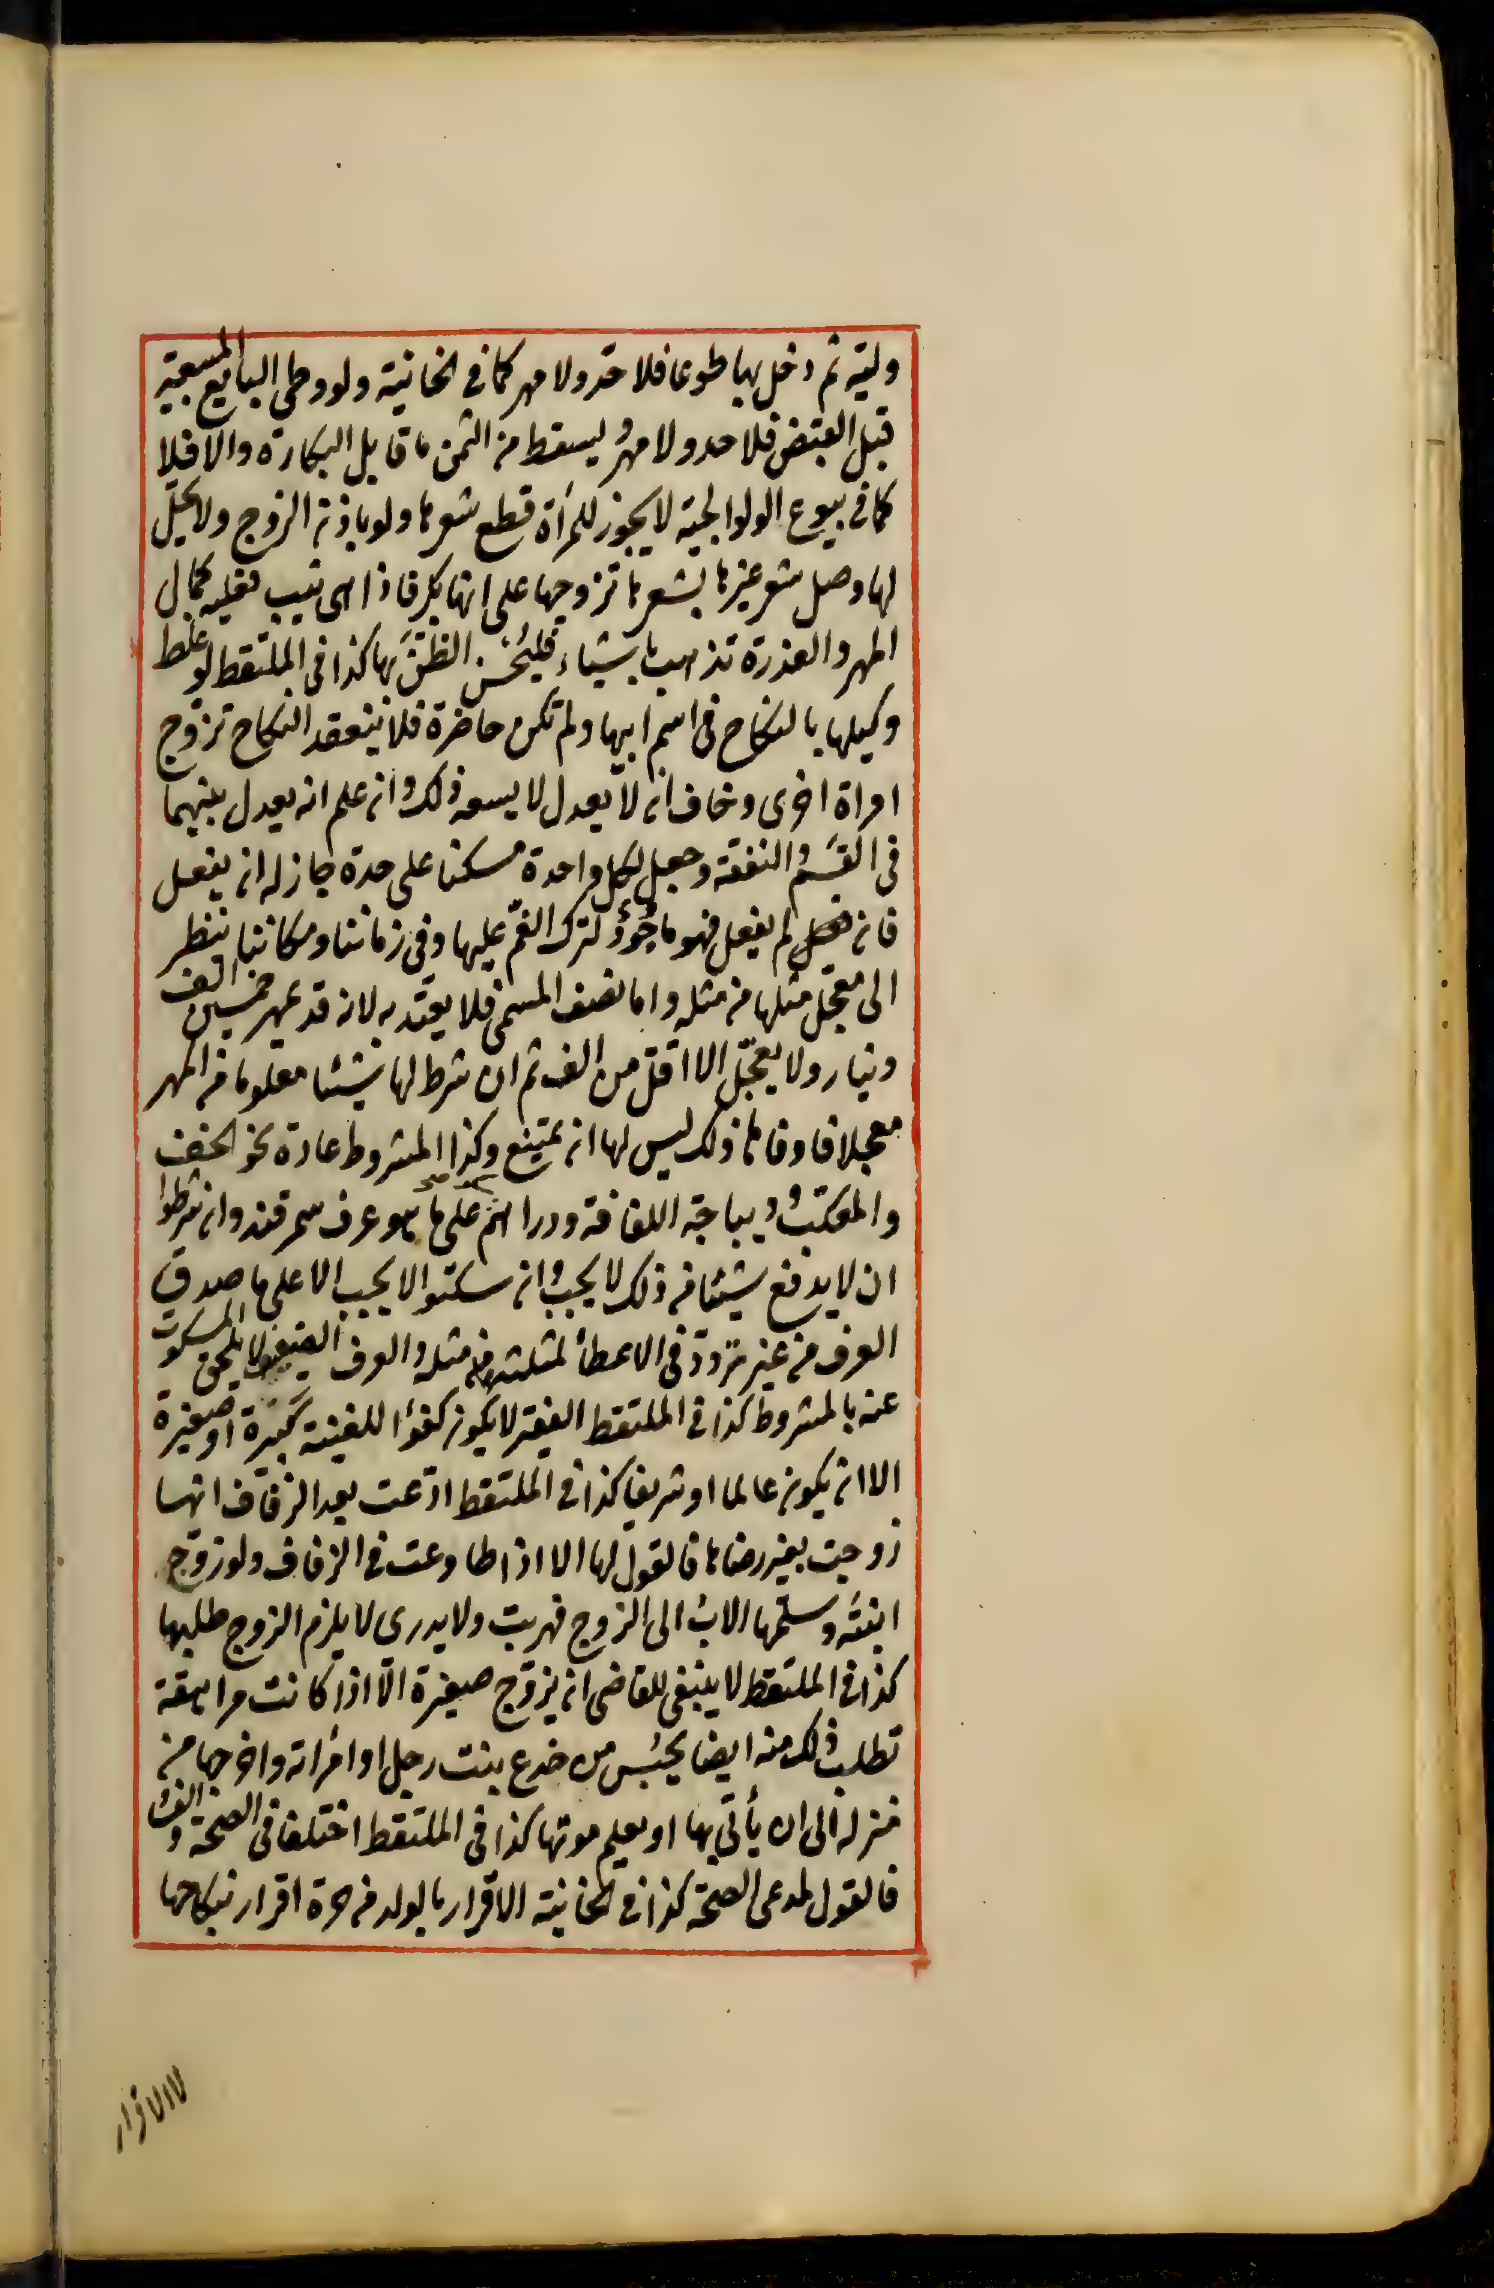 وليه ثم دخل بها طوعا فلا حد ولا مهر كما في الخانية ولو وطئ البايع المبيعة
قبل القبض فلا حد ولا مهر ويسقط من الثمن ما قابل البكارة والا فلا
كما في بيوع الولوالجية لا يجوز للمرأة قطع شعرها ولو باذن الزوج ولا يحل
لها وصل شعر غيرها بشعرها تزوجها على انها بكر فاذا هى ثيب فعليه كمال
المهر والعذرة تذهب باشياء فليحسن الظن بها كذا في الملتقط لو غلط
وكيلها بالنكاح في اسم ابيها ولم تكن حاضرة فلا ينعقد النكاح تزوج
امراة اخرى وخاف ان لا يعدل لا يسعه ذلك وان علم انه يعدل بينهما
في القسم والنفقة وجعل لكل واحدة مسكنا على حدة جاز له ان يفعل
فان لم يفعل فهو ماجور لترك الغم عليها وفي زماننا ومكاننا ننظر
الى معجل مثلها من مثله واما نصف المسمى فلا يعتد به لانه قد يمهر خمسين الف
دينار ولا يعجل الا اقل من الف ثم ان شرط لها شيئا معلوما من المهر
معجلا فاوفاها ذلك ليس لها ان تمتنع وكذا المشروط عادة نحو الخف
والمكعب وديباجة اللفافة ودراهم على ما هو عرف سمرقند وان شرطوا
ان لا يدفع شيئا من ذلك لا يجب وان سكتوا لا يجب الا على ما صدق
العرف من غير تردد في الاعطاء لمثلها من مثله والعرف الضعيف لا يلحق المسكوت
عنه بالمشروط كذا في الملتقط الفقير لا يكون كفؤا للغنية كبيرة او صغيرة
الا ان يكون عالما او شريفا كذا في الملتقط ادعت بعد الزفاف انها
زوجت بغير رضاها فالقول لها الا اذا طاوعت في الزفاف ولو زوج
ابنته وسلمها الاب الى الزوج فهربت ولا يدرى لا يلزم الزوج طلبها
كذا في الملتقط لا ينبغى للقاضى ان يزوج صغيرة الا اذا كانت مراهقة
تطلب ذلك منه ايضا يحبس من خدع بنت رجل او امرأته واخرجها من
منزله الى ان يأتى بها او يعلم موتها كذا في الملتقط اختلفا في الصحة و
فالقول لمدعى الصحة كذا في الخانية الاقرار بالولد من حرة اقرار بنكاحها
لا الاقرار